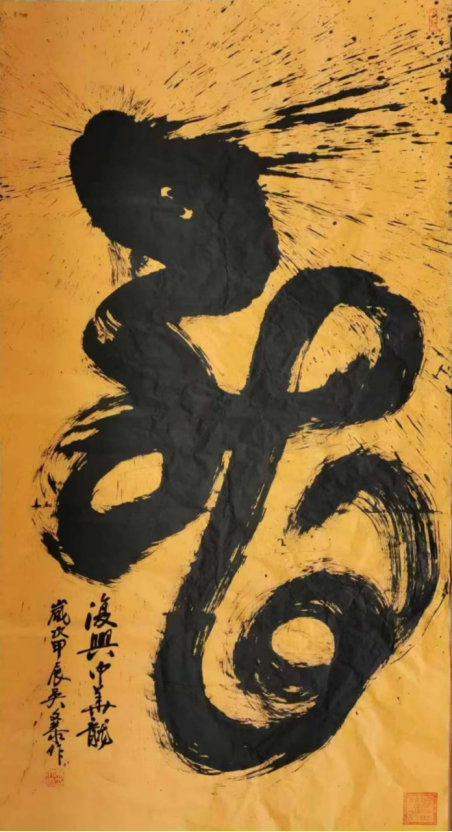 龍
復興中華龍
歲次甲辰吳作